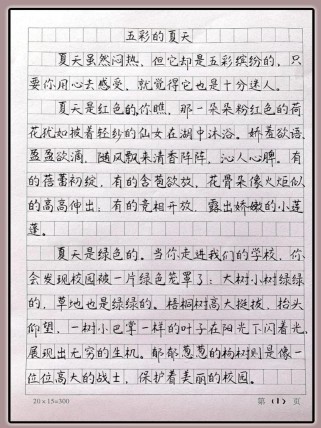 五彩的夏天
夏天虽然闷热，但它却是五彩缤纷的，只
要你用心去感受，就觉得它也是十分迷人。
夏天是红色的，你瞧，那一朵朵粉红色的荷
花犹如披着轻纱的仙女在湖中沐浴。娇羞欲语，
盈盈欲滴，随风飘来清香阵阵，沁人心脾。有
的蓓蕾初绽，有的含苞欲放，花骨朵像火炬似
的高高伸出；有的竞相开放，露出娇嫩的小莲
蓬。
夏天是绿色的。当你走进我们的学校，你
会发现校园被一片绿色笼罩了：大树小树绿绿
的，草地也是绿绿的。梧桐树高大挺拔，抬头
仰望，一树小巴掌一样的叶子在阳光下闪着光，
展现出无穷的生机。郁郁葱葱的杨树则是像一
位位高大的战士，保护着美丽的校园。
20×15=300 第(1)页